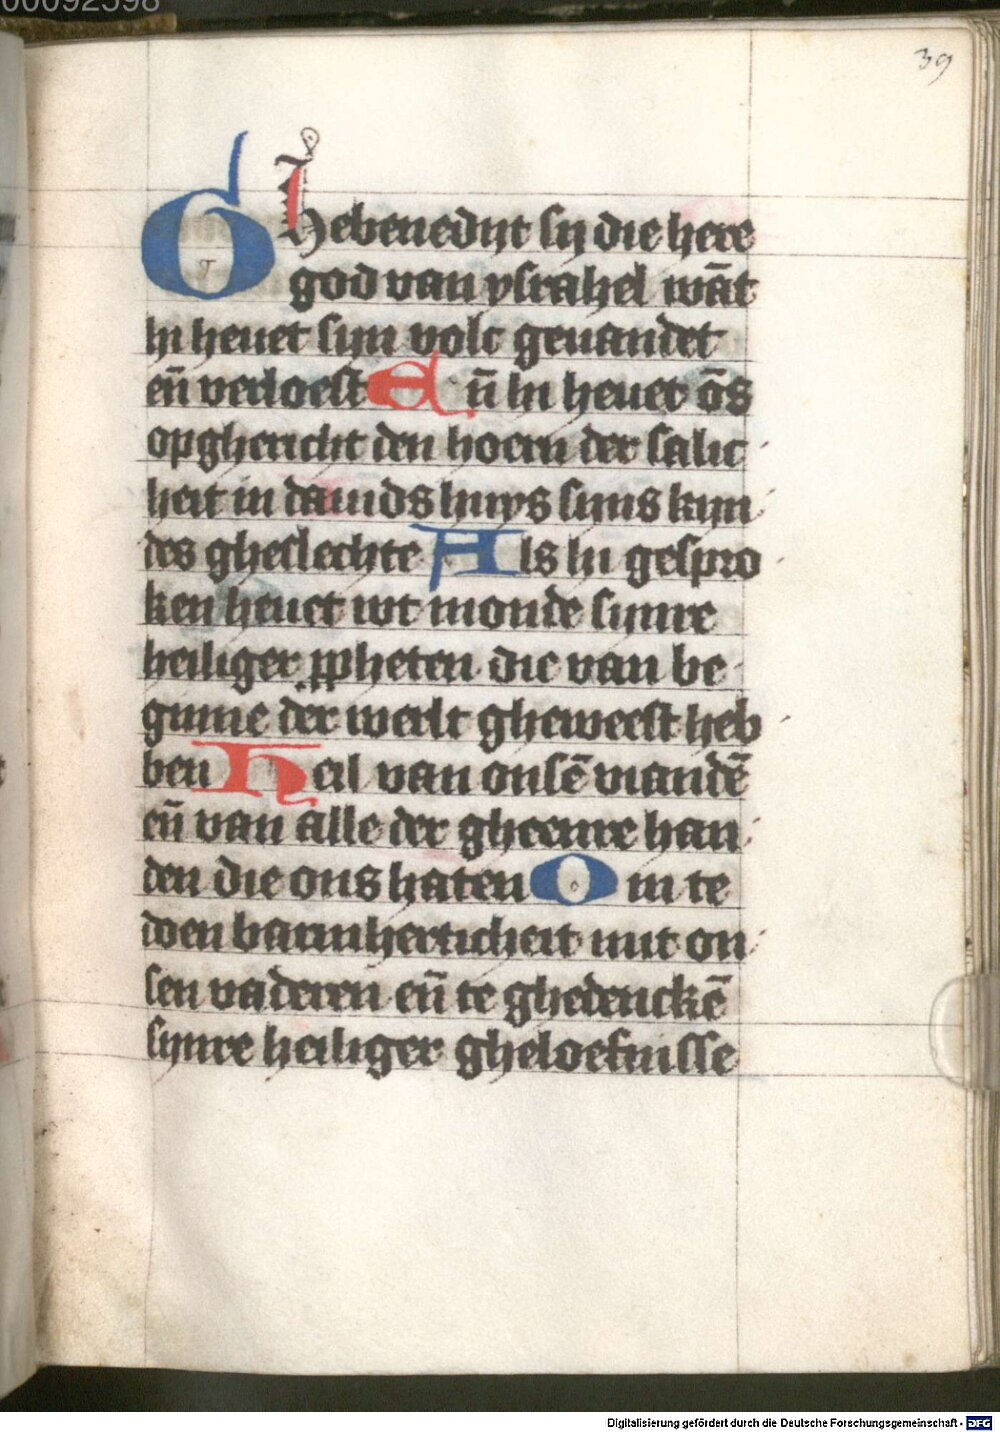 00092598
39
Ghebenedijt sij die here
god van ysrahel wāt
hi heuet sijn volc geuandet
eñ verloest Eñ hi heuet ōs
opghericht den hoern der salic
heit in dauids huys sijns kijn
des gheslechte Als hi gespro
ken heuet wt monde sijnre
heiliger ppheten die van be
ginne der werlt gheweest heb
ben Heil van onsē viandē
eñ van alle der gheenre han
den die ons haten Om te
doen barmherticheit mit on
sen vaderen eñ te ghedenckē
sijnre heiliger gheloefnisse
Digitalisierung gefördert durch die Deutsche Forschungsgemeinschaft - DFG